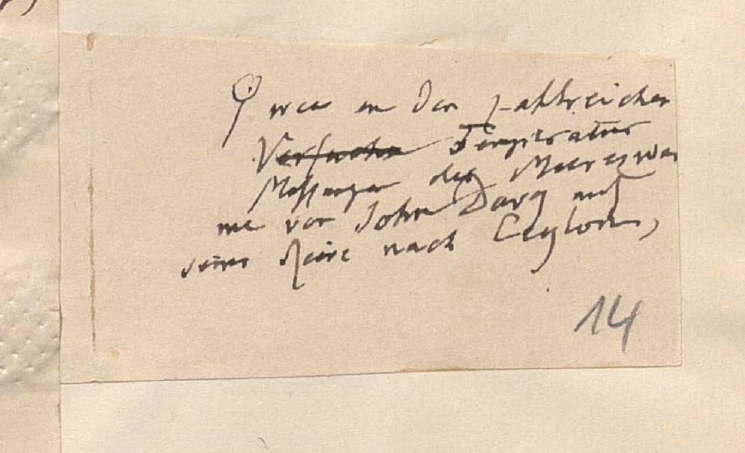 den zahlreichen
Versuchen Temperatur
Messungen der Meereswär
me von John Davy auf
seiner Reise nach Ceylon,
14